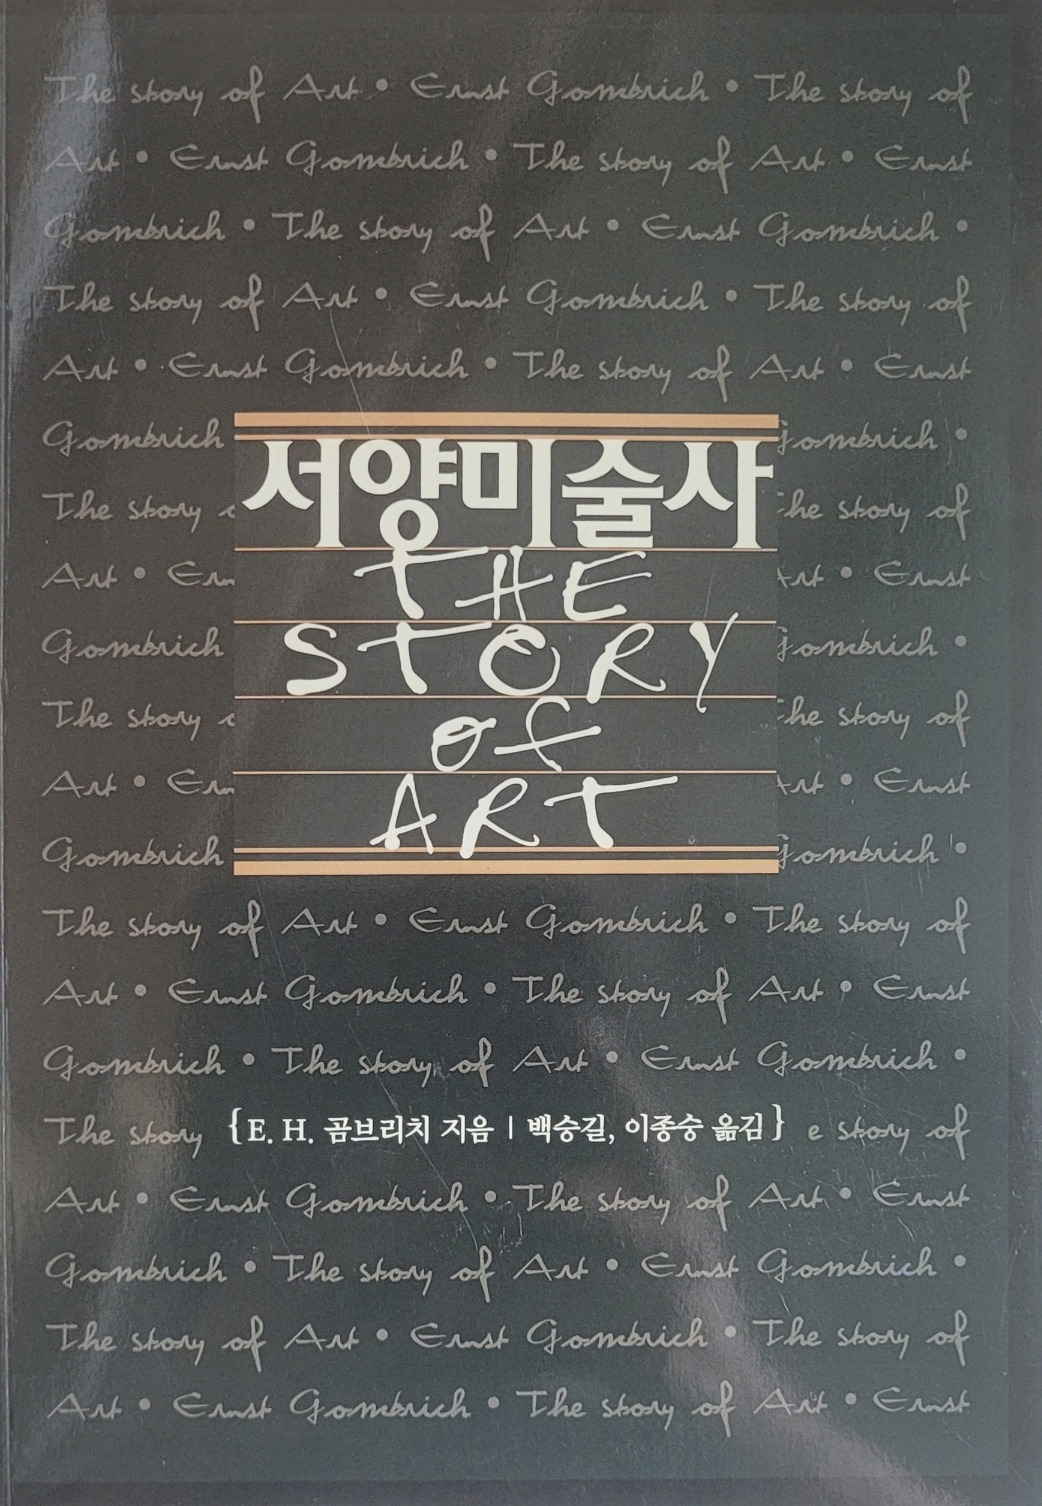 The story of Art • Ernst Gombrich • The story of
Art • Ernst Gombrich • The story of Art • Ernst
Gombrich • The story of Art • Ernst Gombrich •
The story of Art • Ernst Gombrich • The story of
Art • Ernst Gombrich • The story of Art • Ernst
Gombrich
서양미술사
Gombrich •
The story
he story of
Art • Ern
Art • Ernst
THE
Gombrich
Gombrich •
STORY
The story
he story of
of
Art • Ern
Art • Ernst
ART
Gombrich
Gombrich •
The story of Art • Ernst Gombrich • The story of
Art • Ernst Gombrich • The story of Art • Ernst
Gombrich • The story of Art • Ernst Gombrich •
The story {E. H. 곰브리치 지음 | 백승길, 이종숭 옮김} e story of
Art • Ernst Gombrich • The story of Art • Ernst
Gombrich • The story of Art • Ernst Gombrich •
The story of Art • Ernst Gombrich • The story of
Art • Ernst Gombrich • The story of Art • Ernst